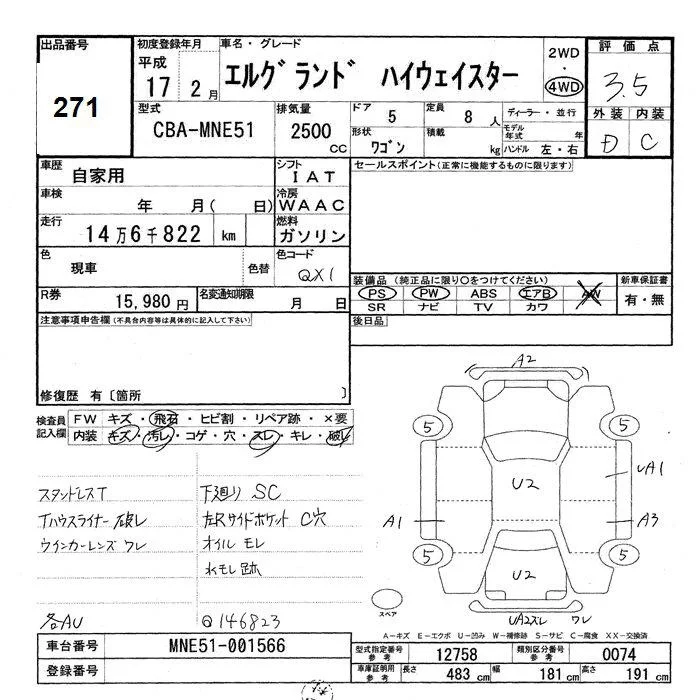 出品番号
271
初度登録年月
平成
17 2月
車名・グレード
エルグランド ハイウェイスター
2WD
・
4WD
評価点
3.5
外装 内装
D C
型式
CBA-MNE51
排気量
2500
CC
ドア
5
定員
8人
ディーラー・並行
形状
ワゴン
積載
kg
モデル年式 年
ハンドル 左・右
車歴
自家用
シフト
IAT
車検
年 月( 日)
冷房
WAAC
走行
14万6千822 km
燃料
ガソリン
色
現車
色替
色コード
QX1
R券
15,980円
名変通知期限
月 日
セールスポイント(正常に機能するものに限ります)
装備品(純正品に限り○をつけてください)
PS PW ABS エアB AW
SR ナビ TV カワ
新車保証書
有・無
後日品
注意事項申告欄(不具合内容等は具体的に記入して下さい)
修復歴 有〔箇所 〕
検査員
記入欄
FW キズ・飛石・ヒビ割・リペア跡・×要
内装 キズ・汚レ・コゲ・穴・スレ・キレ・破レ
スタンドレスT
Tハウスライナー破レ
ウインカーレンズ ワレ
各AU
下廻り SC
左Rサイドポケット C穴
オイル モレ
水モレ跡
@146823
A2
5
5
UA1
U2
A1
A3
5
5
U2
スペア
UA2スレ ワレ
A―キズ E―エクボ U―凹み W―補修跡 S―サビ C―腐食 XX―交換済
車台番号
MNE51-001566
登録番号
型式指定番号
参考
12758
類別区分番号
参考
0074
車庫証明用
参考
長さ
483 cm
幅
181 cm
高さ
191 cm